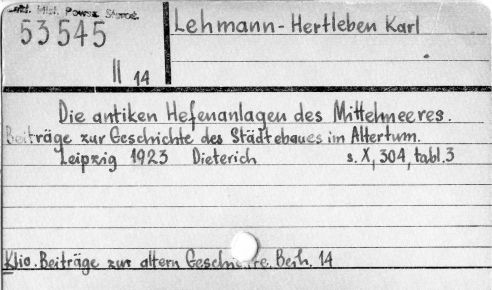 Hist. Powsz. Staroż.
53545
II 14
Lehmann-Hertleben Karl
Die antiken Hefenanlagen des Mittelmeeres.
Beiträge zur Geschichte des Städtebaues im Altertum.
Leipzig 1923 Dieterich s. X, 304, tabl. 3
Klio. Beiträge zur altern Beih. 14